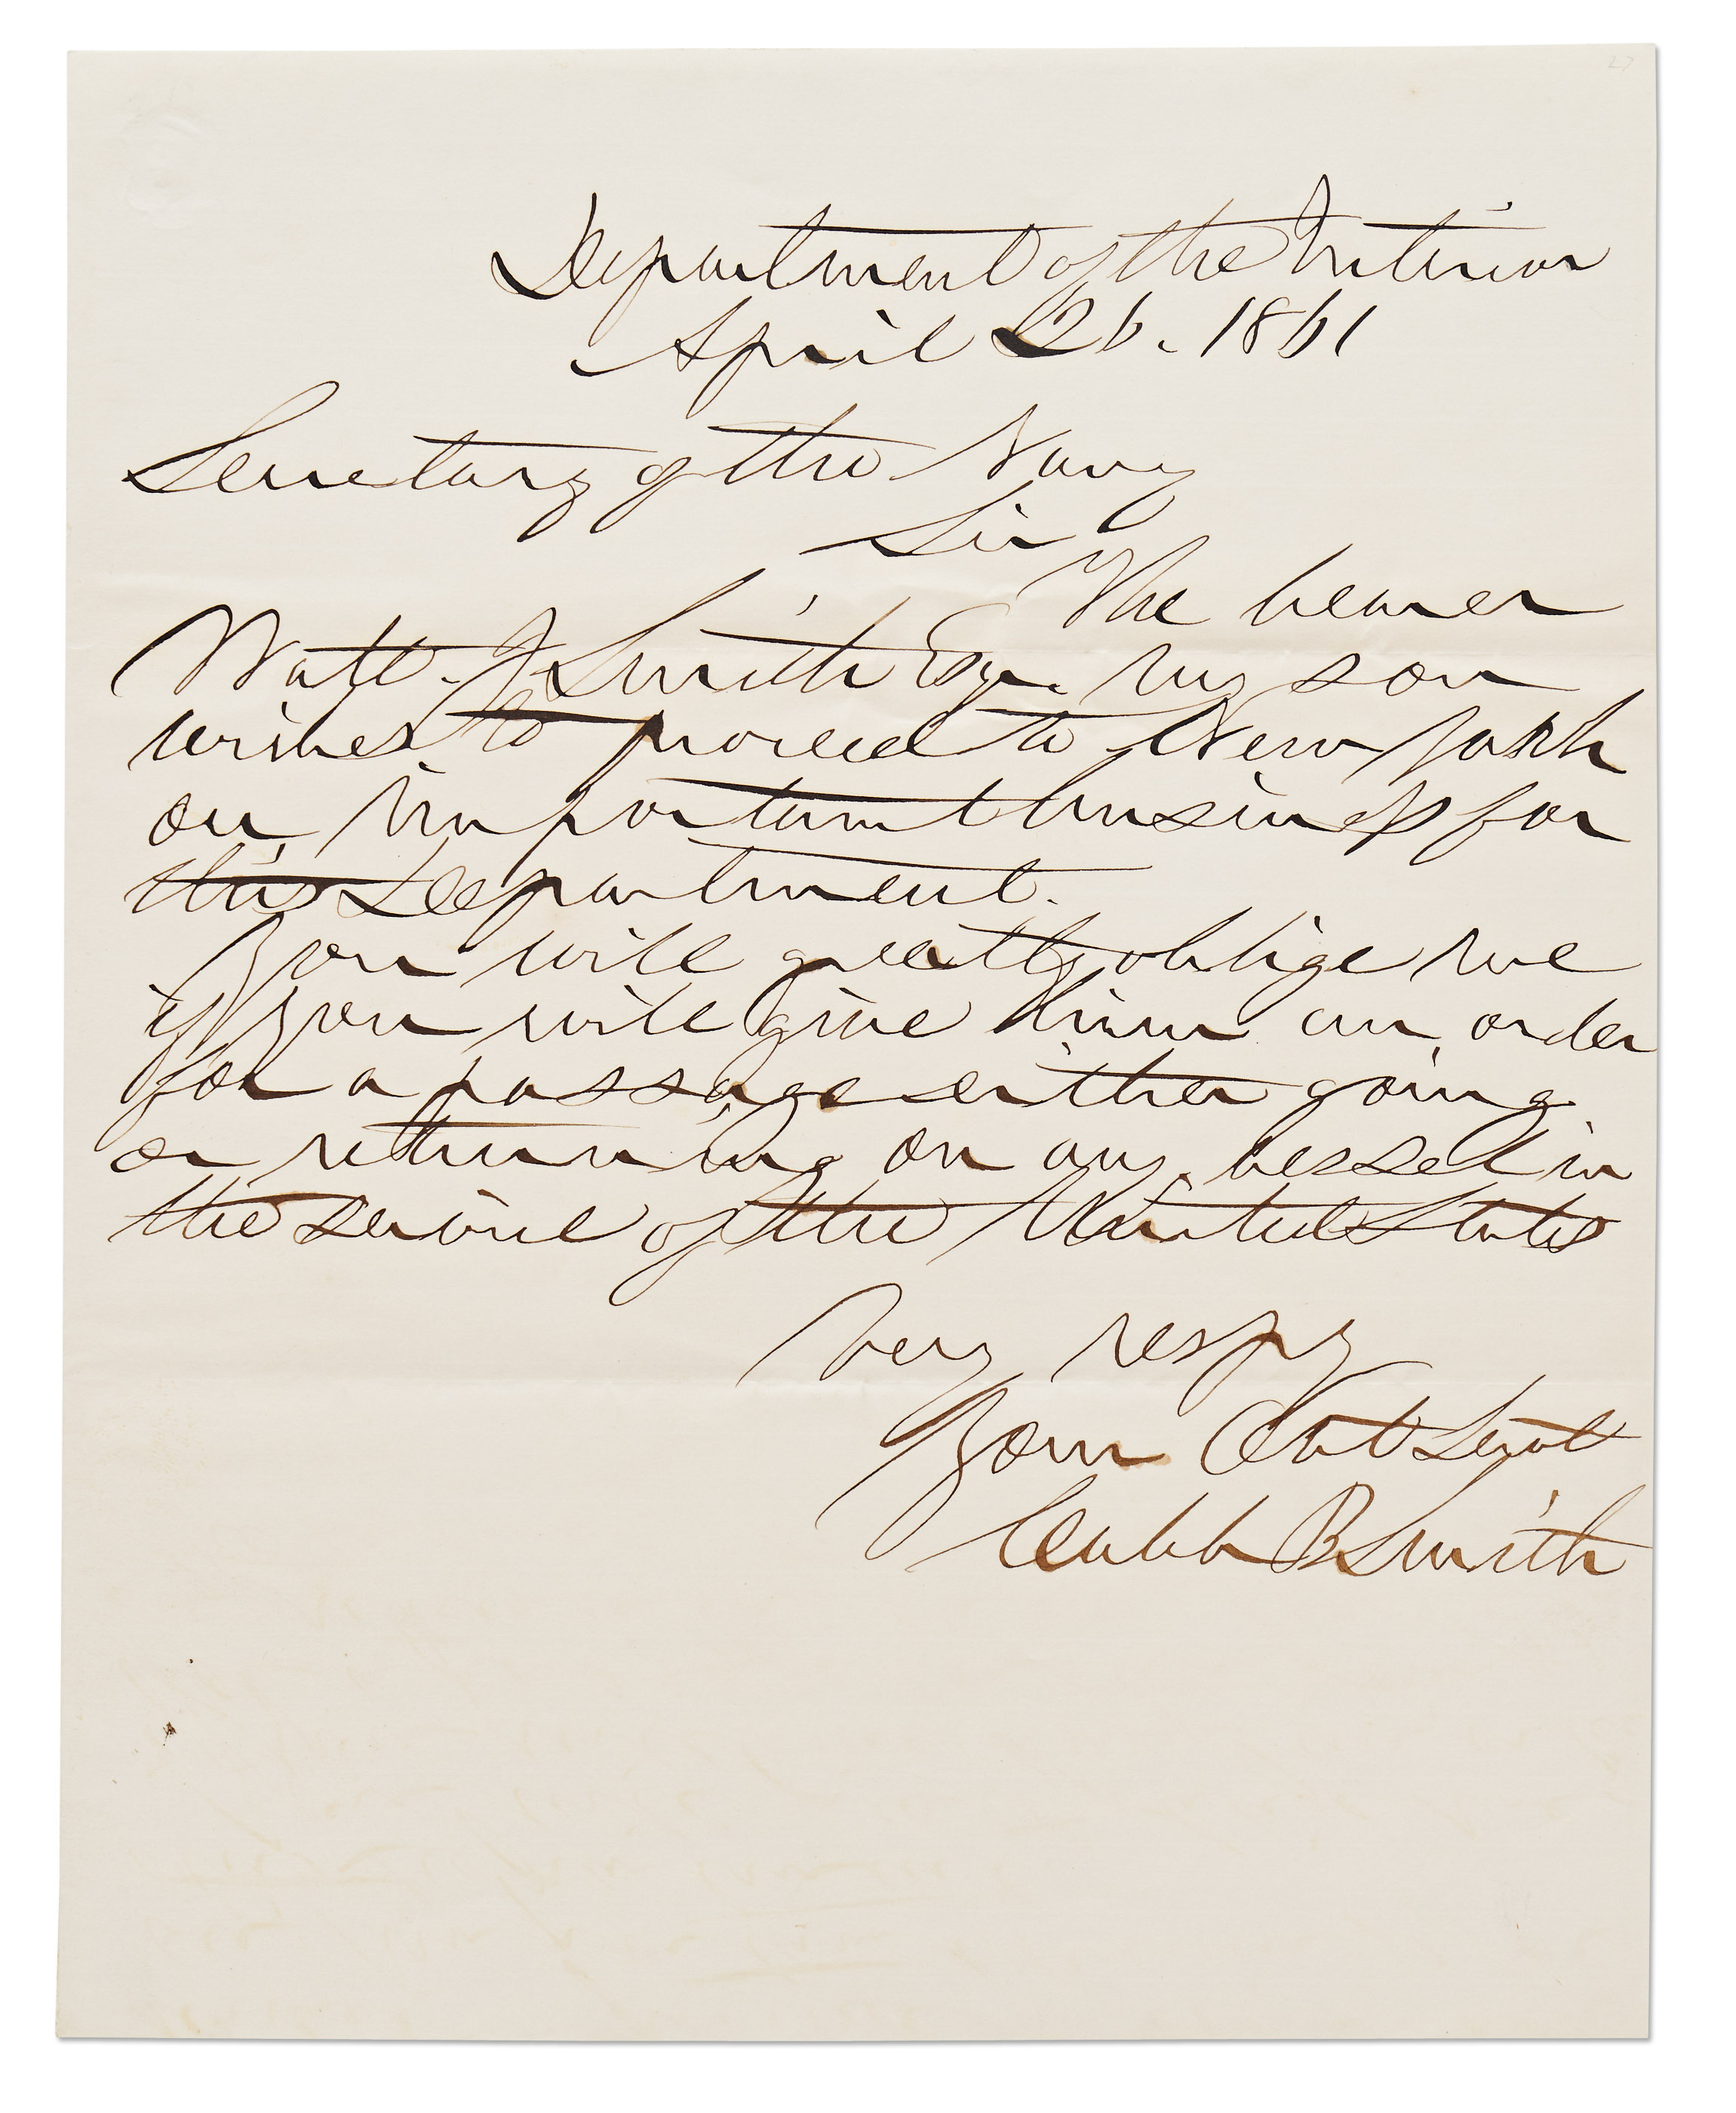 Department of the Interior
April 26. 1861
Secretary of the Navy
Sir
The bearer
Watt. J Smith Esqr. my son
wishes to proceed to New York
on important business for
this Department.
You will greatly oblige me
if you will give him an order
for a passage either going
or returning on any vessel in
the service of the United States
Very respy
Your Obt Servt
Caleb B Smith